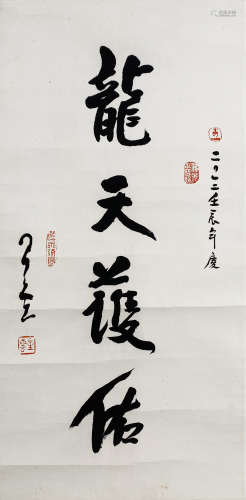 二〇一二壬辰年慶
龍天護佑